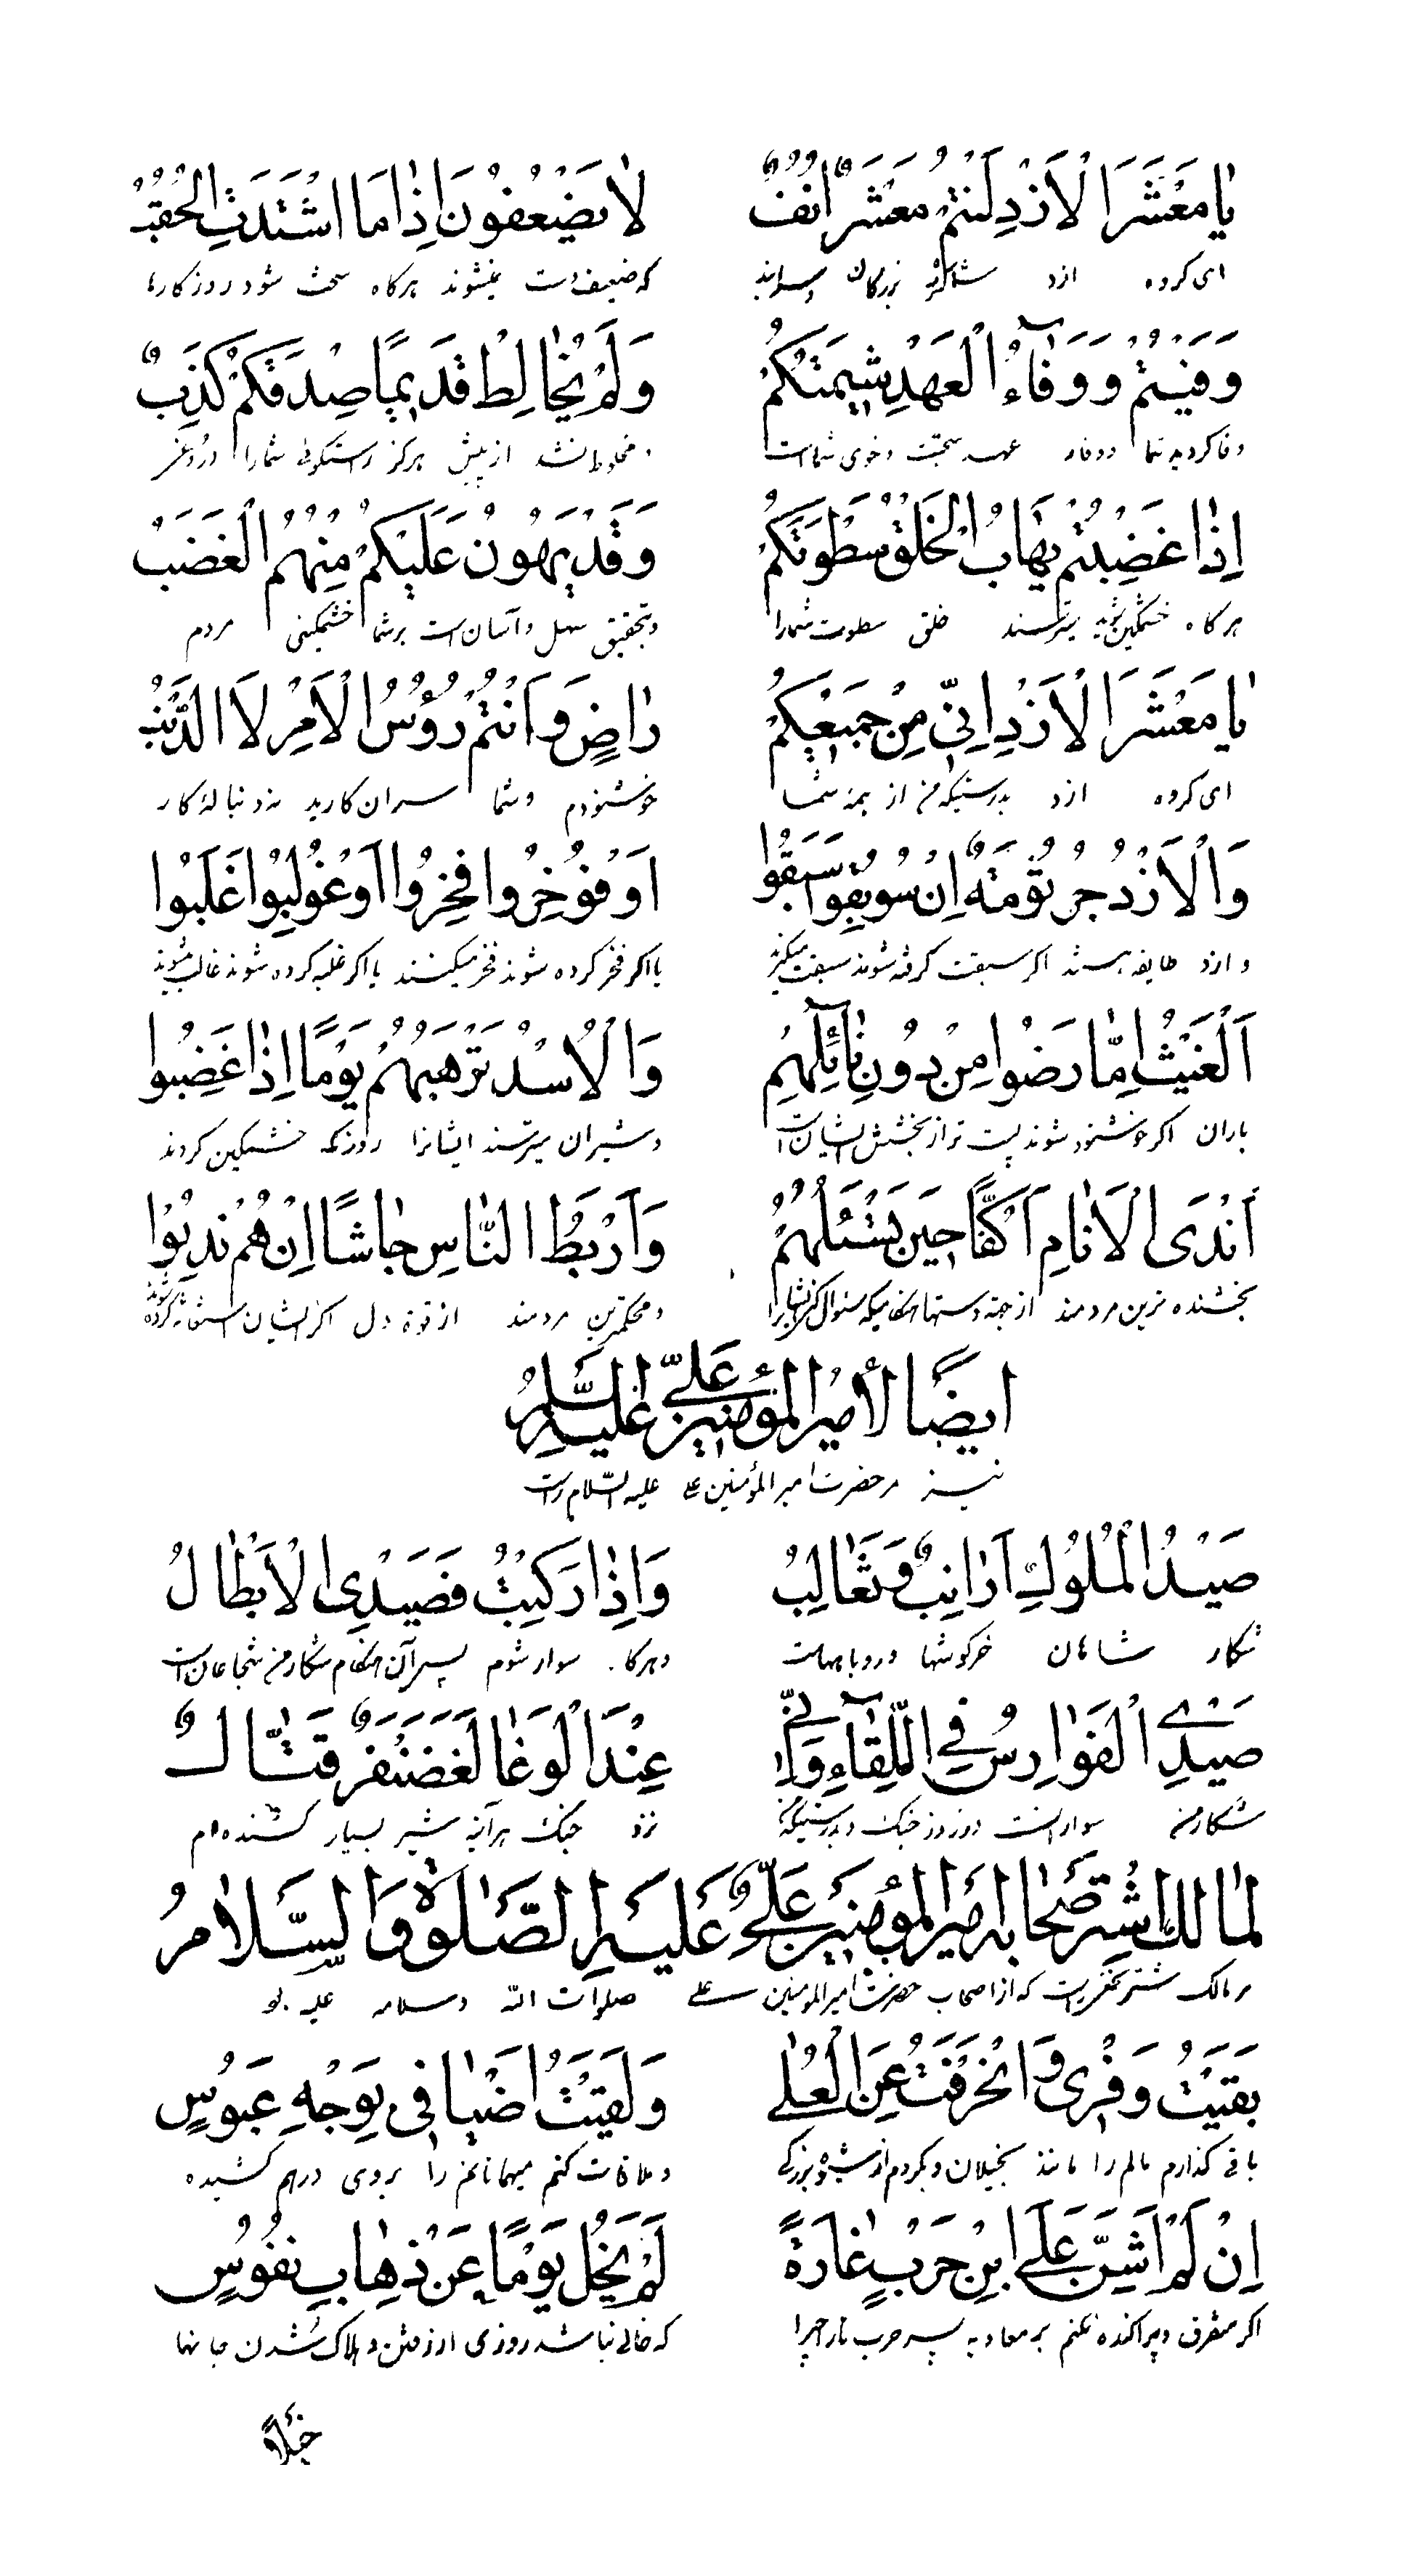 يا مَعْشَرَ الْاَزْدِ اَنْتُمْ مَعْشَرٌ اُنُفٌ لا يَضْعُفُونَ اِذا مَا اشْتَدَّتِ الْحُقُبُ
ای گروه ازد شما گروه بزرگان و سرانید که ضعیف و ست نمیشوند هرگاه سخت شود روزگارها
وَفَيْتُمْ وَوَفآءُ الْعَهْدِ شِيمَتُكُمْ وَلَمْ يُخالِطْ قَديمًا صِدْقَكُمْ كَذِبٌ
وفا کردید شما و وفاء عهد سجیت و خوی شماست و مخلوط نشد از پیش هرگز راستگوئی شما را دروغی
اِذا غَضِبْتُمْ يَهابُ الْخَلْقُ سَطْوَتَكُمْ وَقَدْ يَهُونُ عَلَيْكُمْ مِنْهُمُ الْغَضَبُ
هرگاه خشمگین شوید میترسند خلق سطوت شما را و بتحقیق سهل و آسان است بر شما خشمگینی مردم
يا مَعْشَرَ الْاَزْدِ اِنّي مِنْ جَميعِكُمْ راضٍ وَاَنْتُمْ رُؤُسُ الْاَمْرِ لَا الذَّنَبُ
ای گروه ازد بدرستیکه من از همه شما خوشنودم و شما سران کارید نه دنباله کار
وَالْاَزْدُ جُرْثُومَةٌ اِنْ سُوبِقُوا سَبَقُوا اَوْ فُوخِرُوا فَخِرُوا اَوْ غُولِبُوا غَلَبُوا
و ازد طایفه هستند اگر سبقت گرفته شوند سبقت میگیرند یا اگر فخر کرده شوند فخر میکنند یا اگر غلبه کرده شوند غالب میشوند
اَلْغَيْثُ اِمّا رَضُوا مِنْ دُونِ نآئِلِهِمِ وَالْاُسْدُ تَرْهَبُهُمْ يَوْمًا اِذا غَضِبُوا
باران اگر خوشنود شوند پست تر از بخشش ایشان است و شیران میترسند ایشانرا روزیکه خشمگین گردند
اَنْدَى الْاَنامِ اَكُفًّا حينَ تَسْئَلُهُمْ وَاَرْبَطُ النّاسِ جاشًا اِنْ هُمْ نُدِبُوا
بخشنده ترین مردمند از جهة دستها هنگامیکه سئوال کنی ایشانرا و محکمترین مردمند از قوة دل اگر ایشان استغاثه کرده شوند
ايضًا لأميرالمؤمنين عَليّ عليه السّلام
نیز مر حضرت امیرالمؤمنین علی علیه السّلام راست
صَيْدُ الْمُلُوكِ اَرانِبٌ وَثَعالِبُ وَاِذا رَكِبْتُ فَصَيْدِيَ الْاَبْطالُ
شکار شاهان خرگوشها و روباههاست و هرگاه سوار شوم پس آن هنگام شکار من شجاعان است
صَيْدِي الْفَوارِسُ فِي اللِّقآءِ وَاِنَّنِي عِنْدَ الْوَغا لَغَضَنْفَرٌ قَتّالٌ
شکار من سواران است در روز جنگ و بدرستیکه من نزد جنگ هرآینه شیر بسیار کشنده ام
لمالك اشتر صحابه اميرالمؤمنين عَلِيٍّ عَلَيْهِ الصَّلوةُ وَالسَّلامُ
مر مالک شتر نخعی راست که از اصحاب حضرت امیرالمؤمنین علی صلوات الله و سلامه علیه بود
بَقَيْتُ وَفْرِي وَانْحَرَفْتُ عَنِ الْعُلى وَلَقيتُ اَضْيافي بِوَجْهِ عَبُوسٍ
باقی گذارم مالم را مانند بخیلان و بگردم از شیوه بزرگی و ملاقات کنم میهمانانم را بروی درهم کشیده
اِنْ لَمْ اَشُنَّ عَلَى ابْنِ حَرْبٍ غارَةً لَمْ يَخْلُ يَوْمًا عَنْ ذِهابِ نُفُوسٍ
اگر متفرق و پراکنده نکنم بر معاویه پسر حرب تاراجی را که خالی نباشد روزی از رفتن و هلاک شدن جانها
خَيْلًا